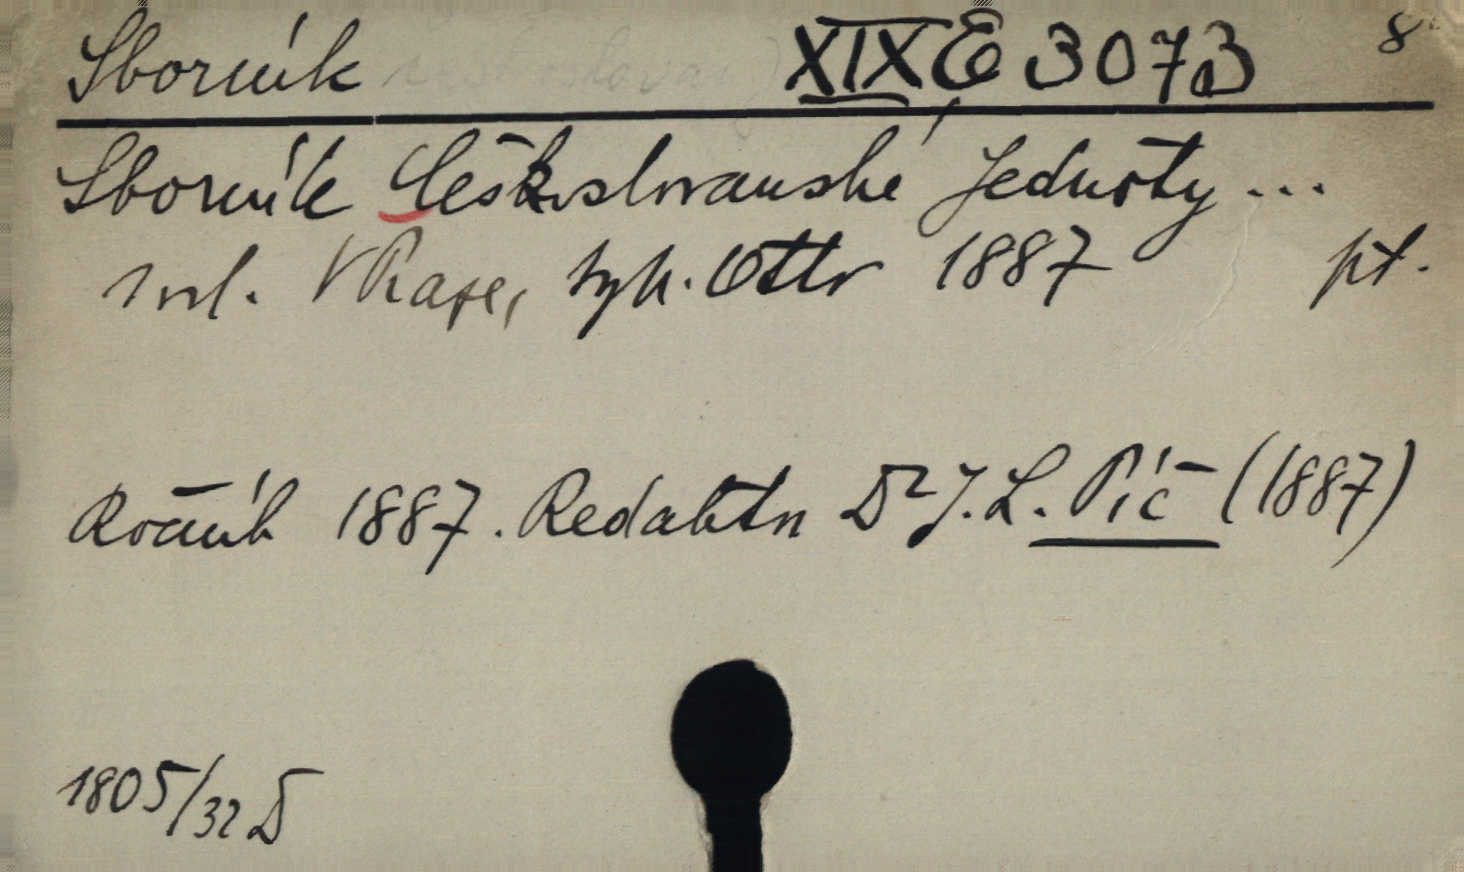 Sborník XIX E 307B 8°
Sborník Českoslovanské Jednoty ...
1 vol. V Praze, tyk. Otto 1887 pt.
Ročník 1887. Redaktn Dr J. L. Píč (1887)
1805/32 D